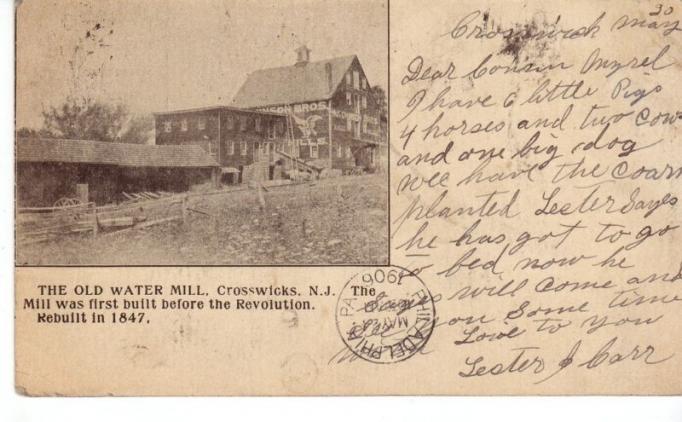 Crosswick May 30
Dear Cousin
I have 6 little Pigs
4 horses and two Cows
and one big dog
wee have the Coarn
planted Lester Sayes
he has got to go
to bed now he
will Come and
you Some time
Love to you
Lester J Carr
NSON BROS.
THE OLD WATER MILL, Crosswicks, N.J. The
Mill was first built before the Revolution.
Rebuilt in 1847.
PHILADELPHIA PA. 1906
MAY